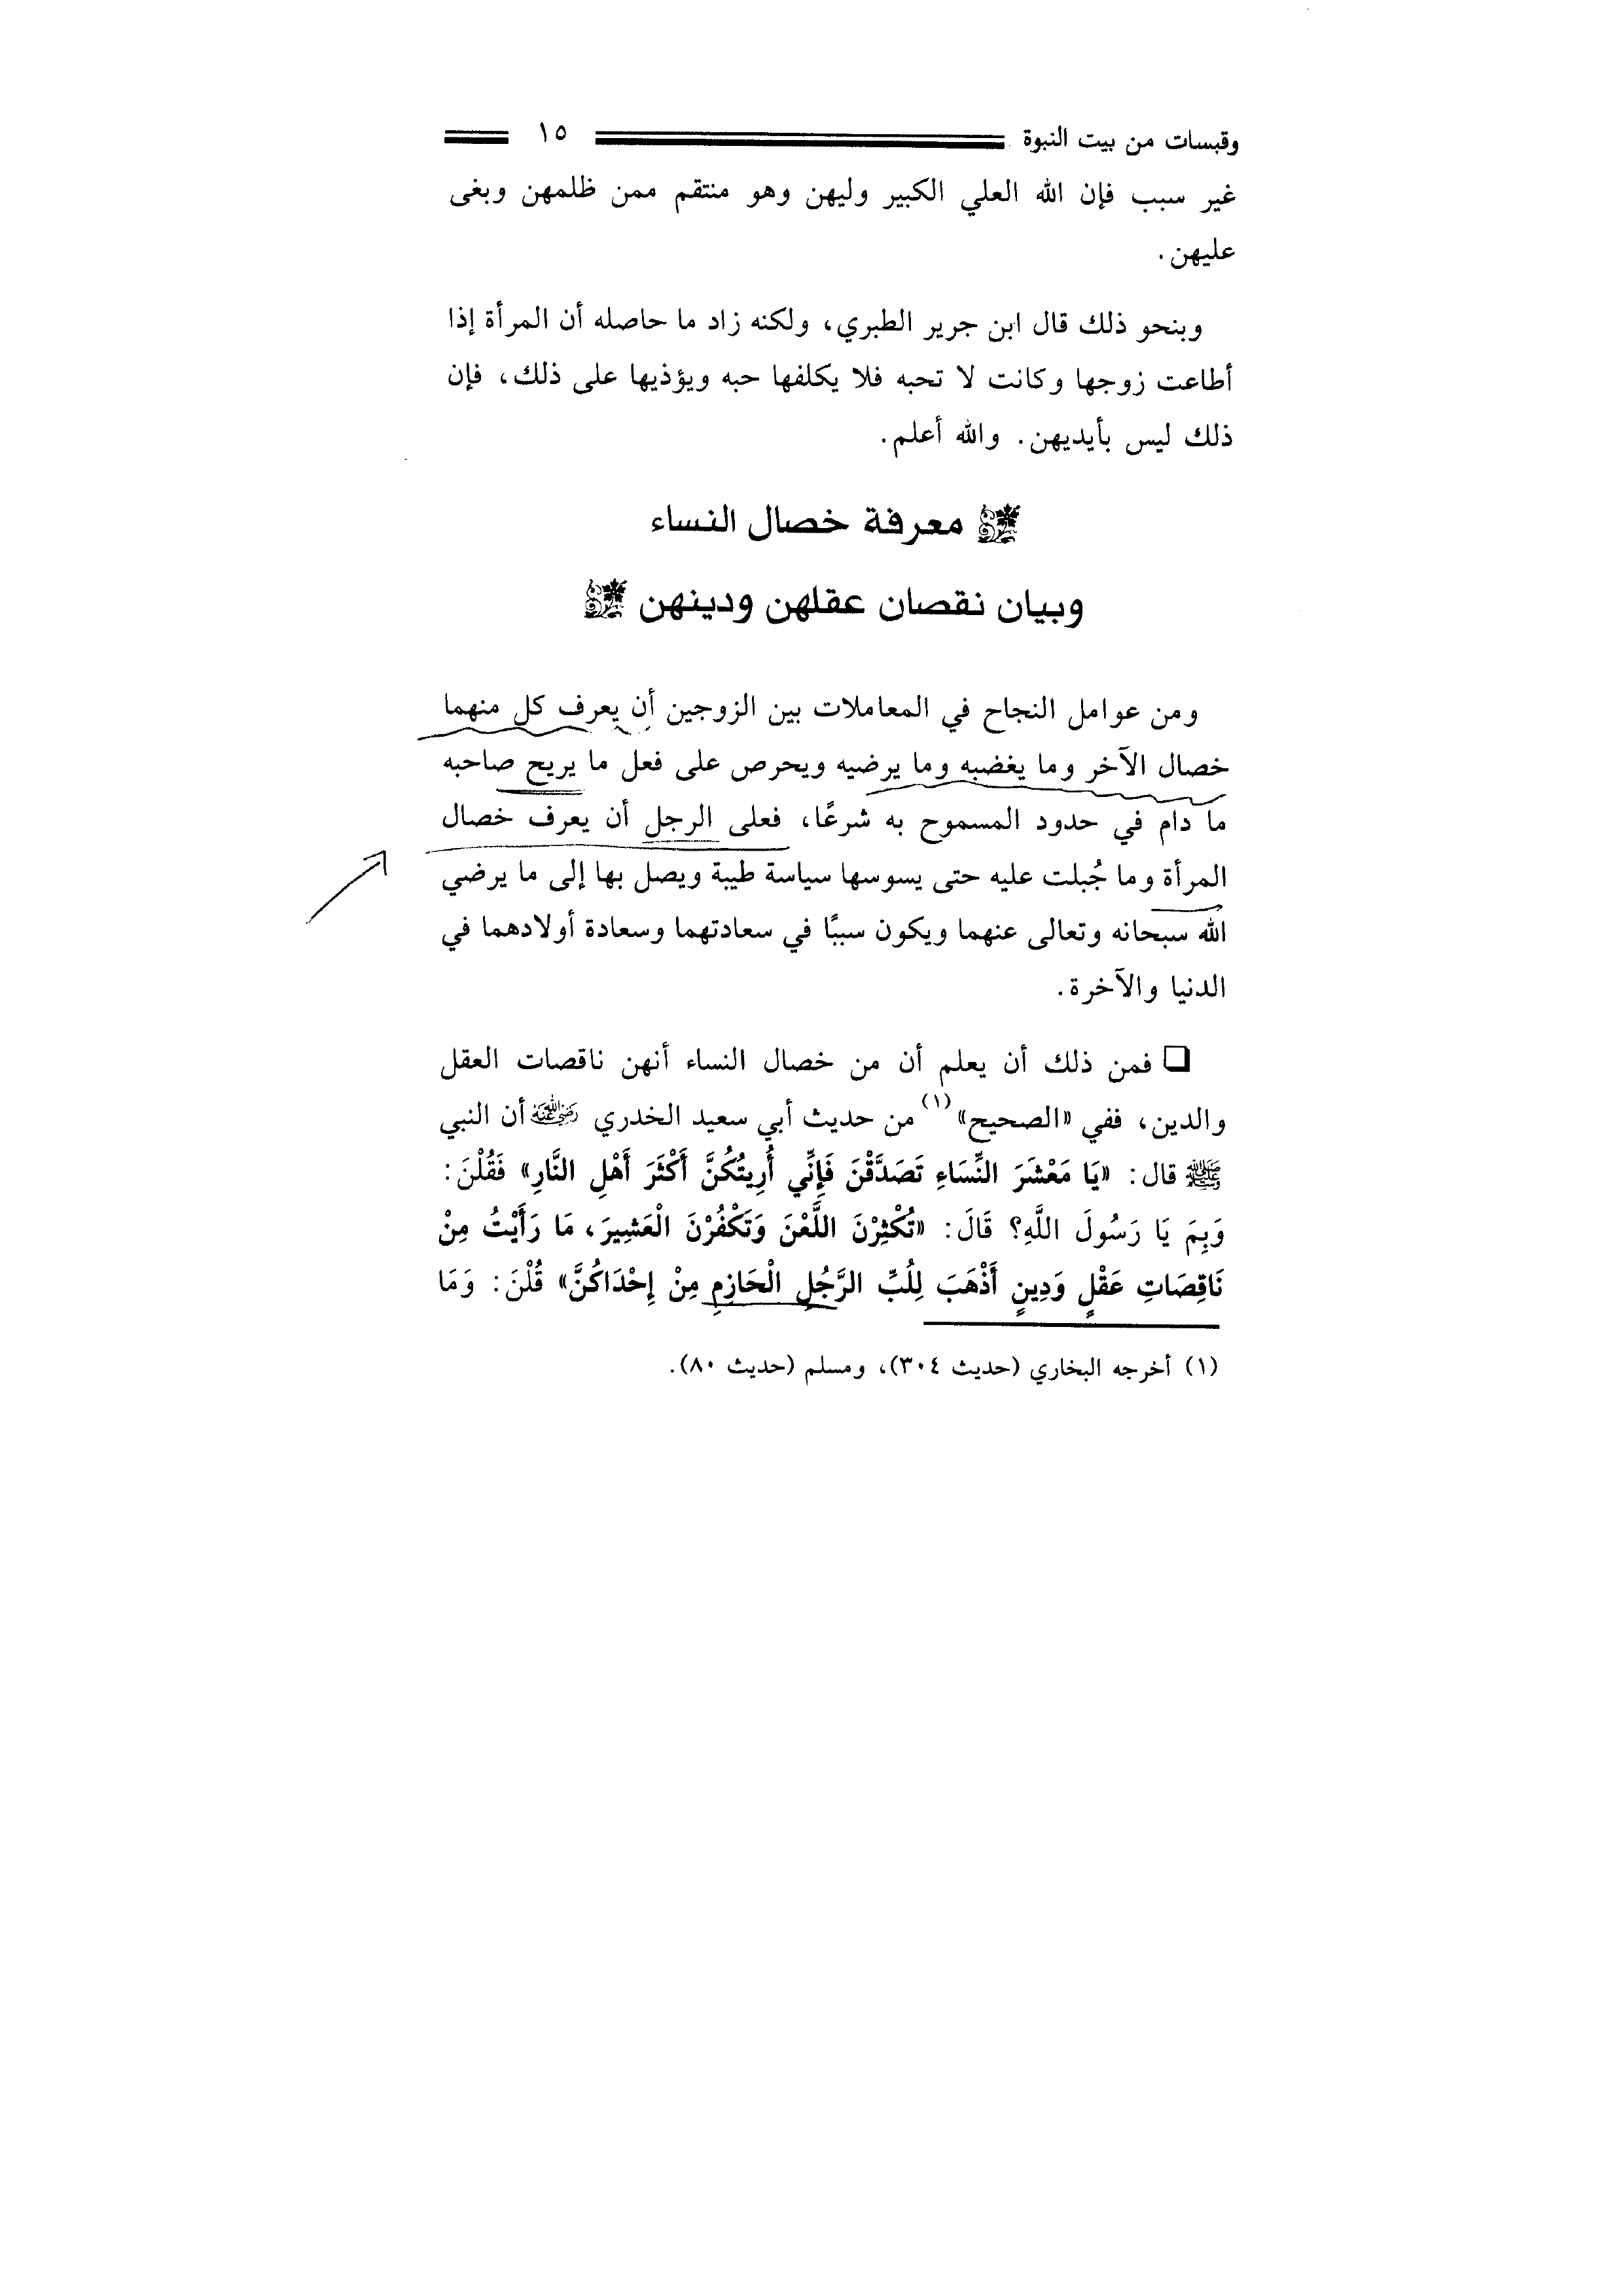 وقبسات من بيت النبوة ١٥
غير سبب فإن الله العلي الكبير وليهن وهو منتقم ممن ظلمهن وبغى
عليهن.
وبنحو ذلك قال ابن جرير الطبري، ولكنه زاد ما حاصله أن المرأة إذا
أطاعت زوجها وكانت لا تحبه فلا يكلفها حبه ويؤذيها على ذلك، فإن
ذلك ليس بأيديهن. والله أعلم.
معرفة خصال النساء
وبيان نقصان عقلهن ودينهن
ومن عوامل النجاح في المعاملات بين الزوجين أن يعرف كل منهما
خصال الآخر وما يغضبه وما يرضيه ويحرص على فعل ما يريح صاحبه
ما دام في حدود المسموح به شرعًا، فعلى الرجل أن يعرف خصال
المرأة وما جُبلت عليه حتى يسوسها سياسة طيبة ويصل بها إلى ما يرضي
الله سبحانه وتعالى عنهما ويكون سببًا في سعادتهما وسعادة أولادهما في
الدنيا والآخرة.
❏ فمن ذلك أن يعلم أن من خصال النساء أنهن ناقصات العقل
والدين، ففي «الصحيح»(١) من حديث أبي سعيد الخدري رضي الله عنه أن النبي
ﷺ قال: «يَا مَعْشَرَ النِّسَاءِ تَصَدَّقْنَ فَإِنِّي أُرِيتُكُنَّ أَكْثَرَ أَهْلِ النَّارِ» فَقُلْنَ:
وَبِمَ يَا رَسُولَ اللَّهِ؟ قَالَ: «تُكْثِرْنَ اللَّعْنَ وَتَكْفُرْنَ الْعَشِيرَ، مَا رَأَيْتُ مِنْ
نَاقِصَاتِ عَقْلٍ وَدِينٍ أَذْهَبَ لِلُبِّ الرَّجُلِ الْحَازِمِ مِنْ إِحْدَاكُنَّ» قُلْنَ: وَمَا
(١) أخرجه البخاري (حديث ٣٠٤)، ومسلم (حديث ٨٠).